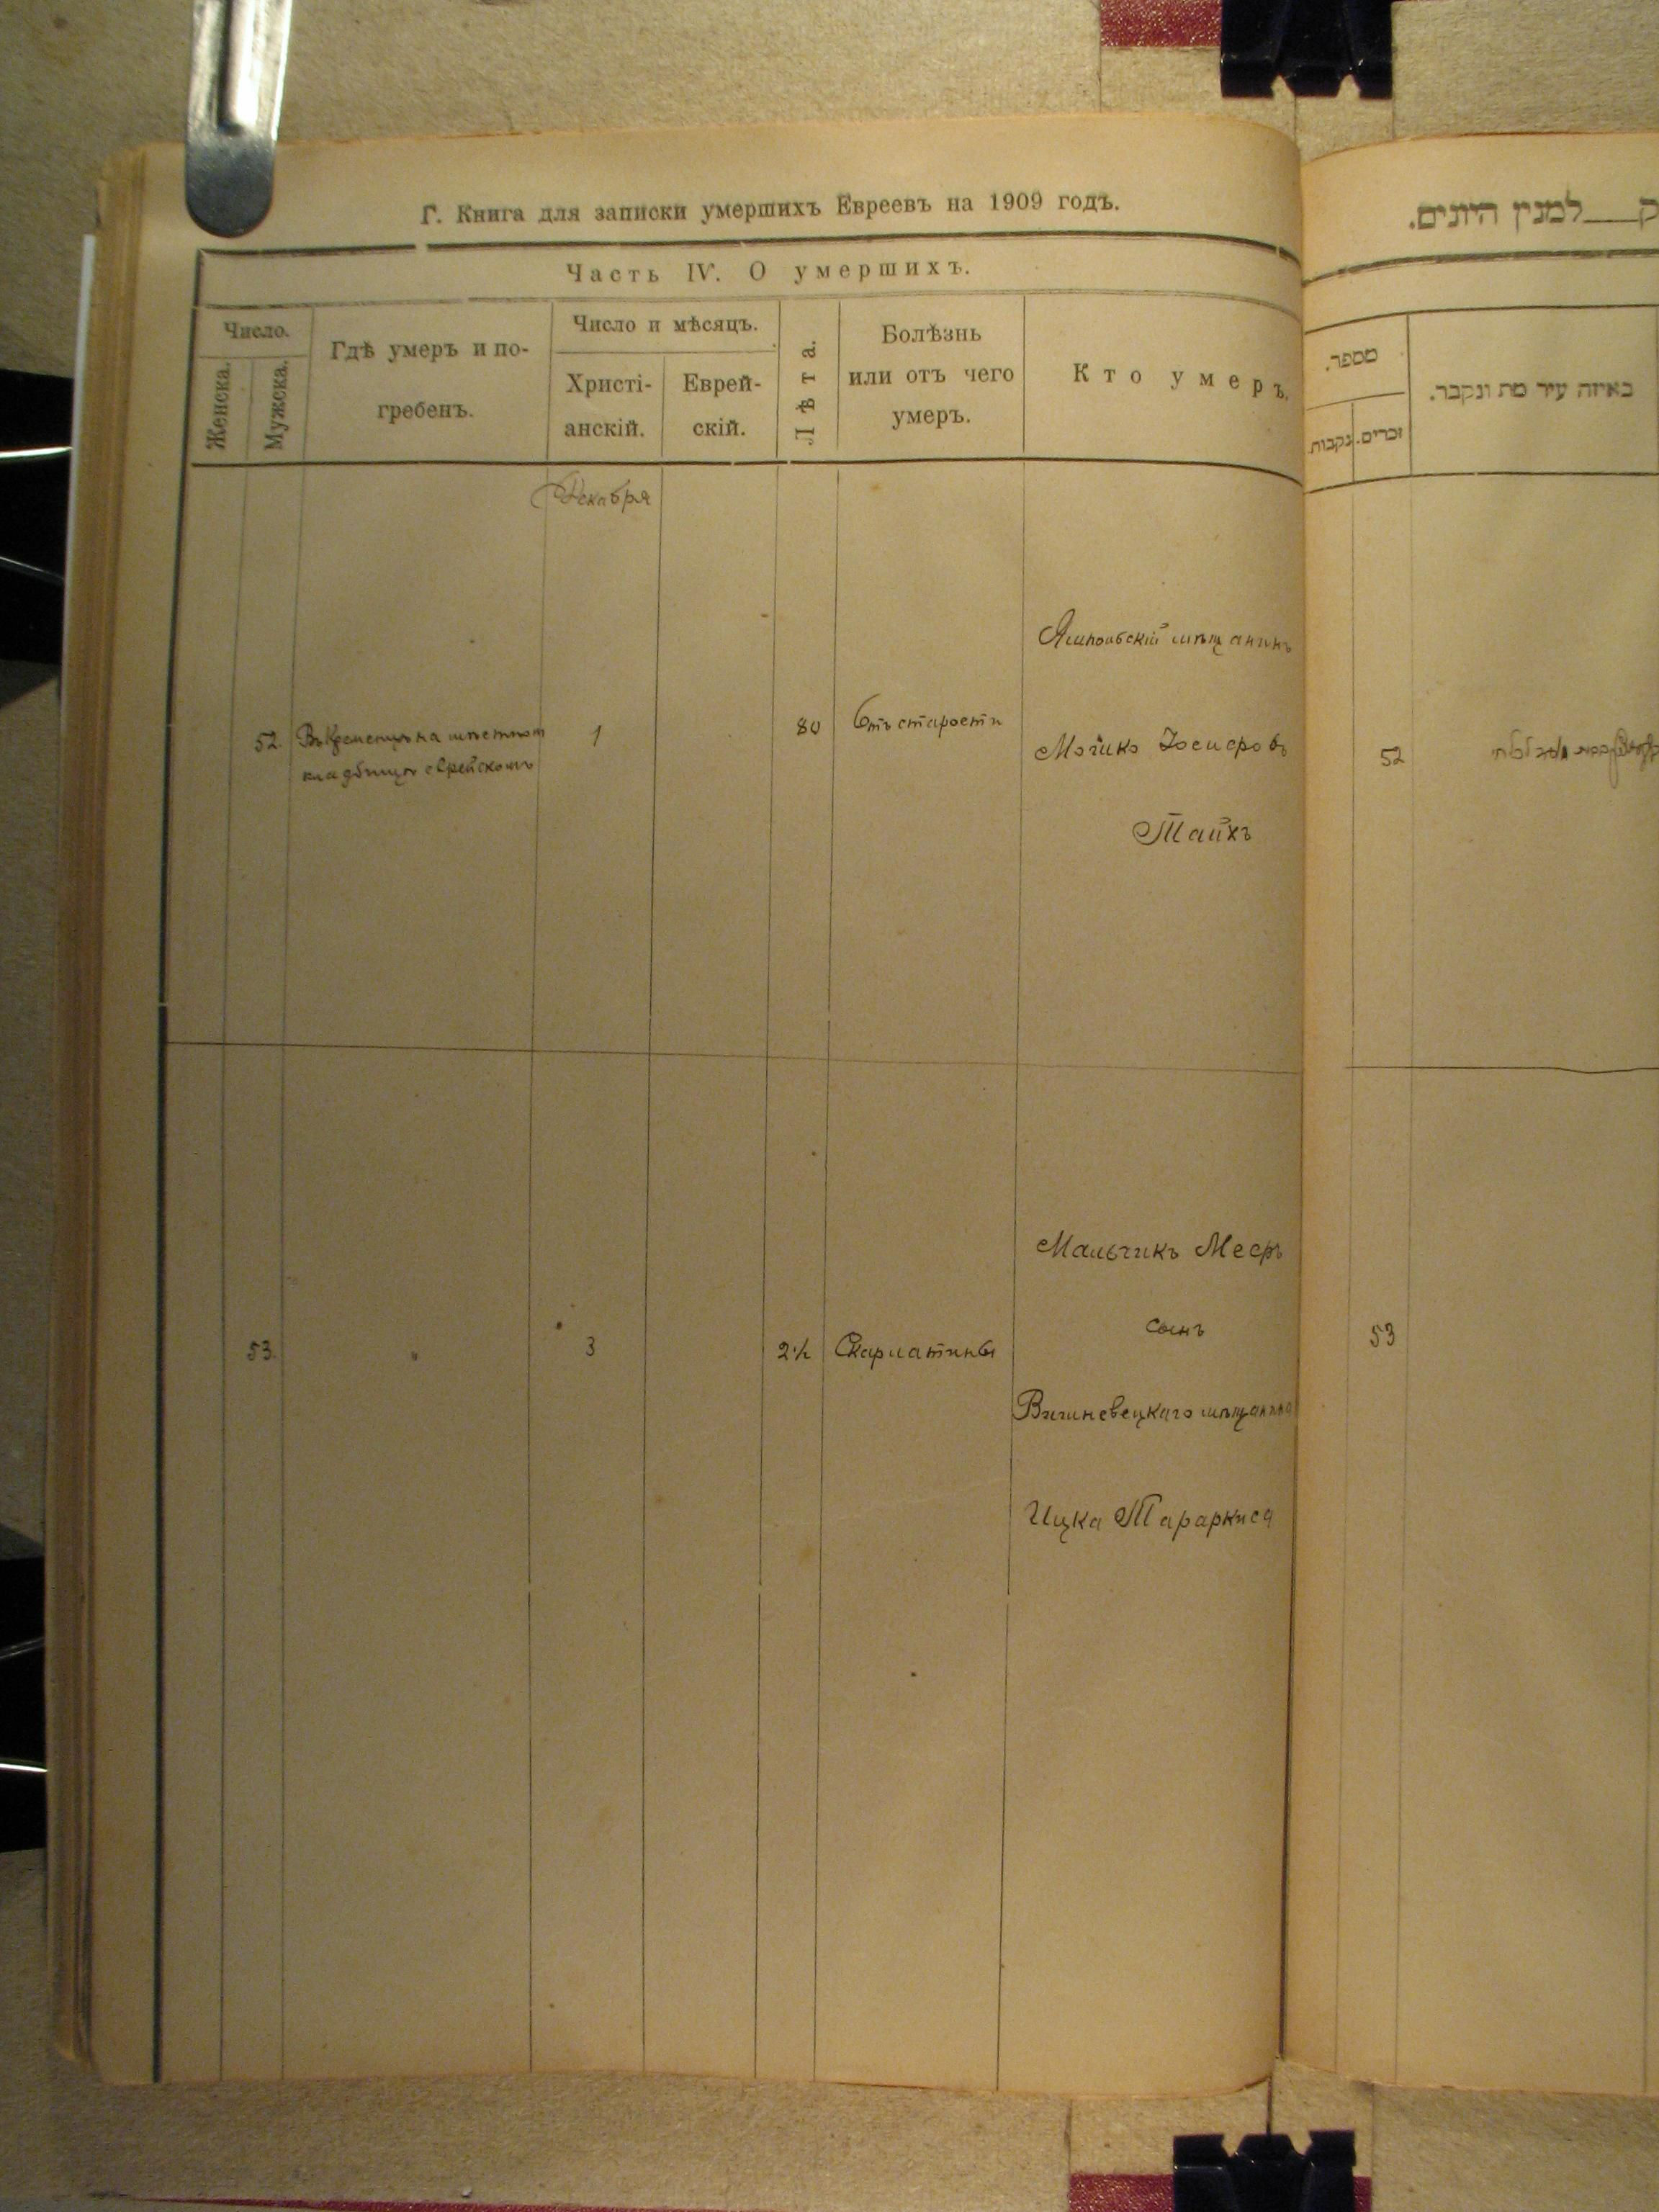 Г. Книга для записки умершихъ Евреевъ на 1909 годъ.
Часть IV. О умершихъ.
Число.
Женска.
Мужска.
Гдѣ умеръ и по-
гребенъ.
Число и мѣсяцъ.
Христі-
анскій.
Еврей-
скій.
Лѣта.
Болѣзнь
или отъ чего
умеръ.
Кто умеръ.
Декабря
52.
Въ Кременцѣ на мѣстном
кладбищѣ еврейскомъ
1
80
Отъ старости
Ямпольскій мѣщанинъ
Іосифовъ
53.
"
3
2½
Скарлатины
Мальчикъ Мееръ
сынъ
Вишневецкаго мѣщанина
Ицка
ק___למנין היונים.
מספר.
נקבות.
זכרים.
באיזה עיר מת ונקבר.
52
53